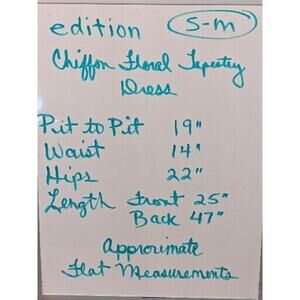 edition S-M
Chiffon Floral Tapestry
Dress
Pit to Pit 19"
Waist 14"
Hips 22"
Length Front 25"
Back 47"
Approximate
Flat Measurements